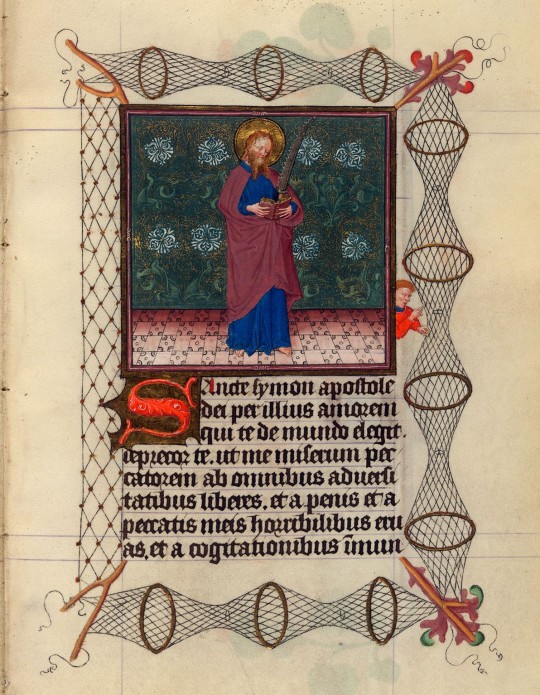 Sancte symon apostole
dei per illius amorem
qui te de mundo elegit.
deprecor te. ut me miserum pec
catorem ab omnibus aduersi
tatibus liberes. et a penis et a
peccatis meis horribilibus eru
as. et a cogitationibus īmun